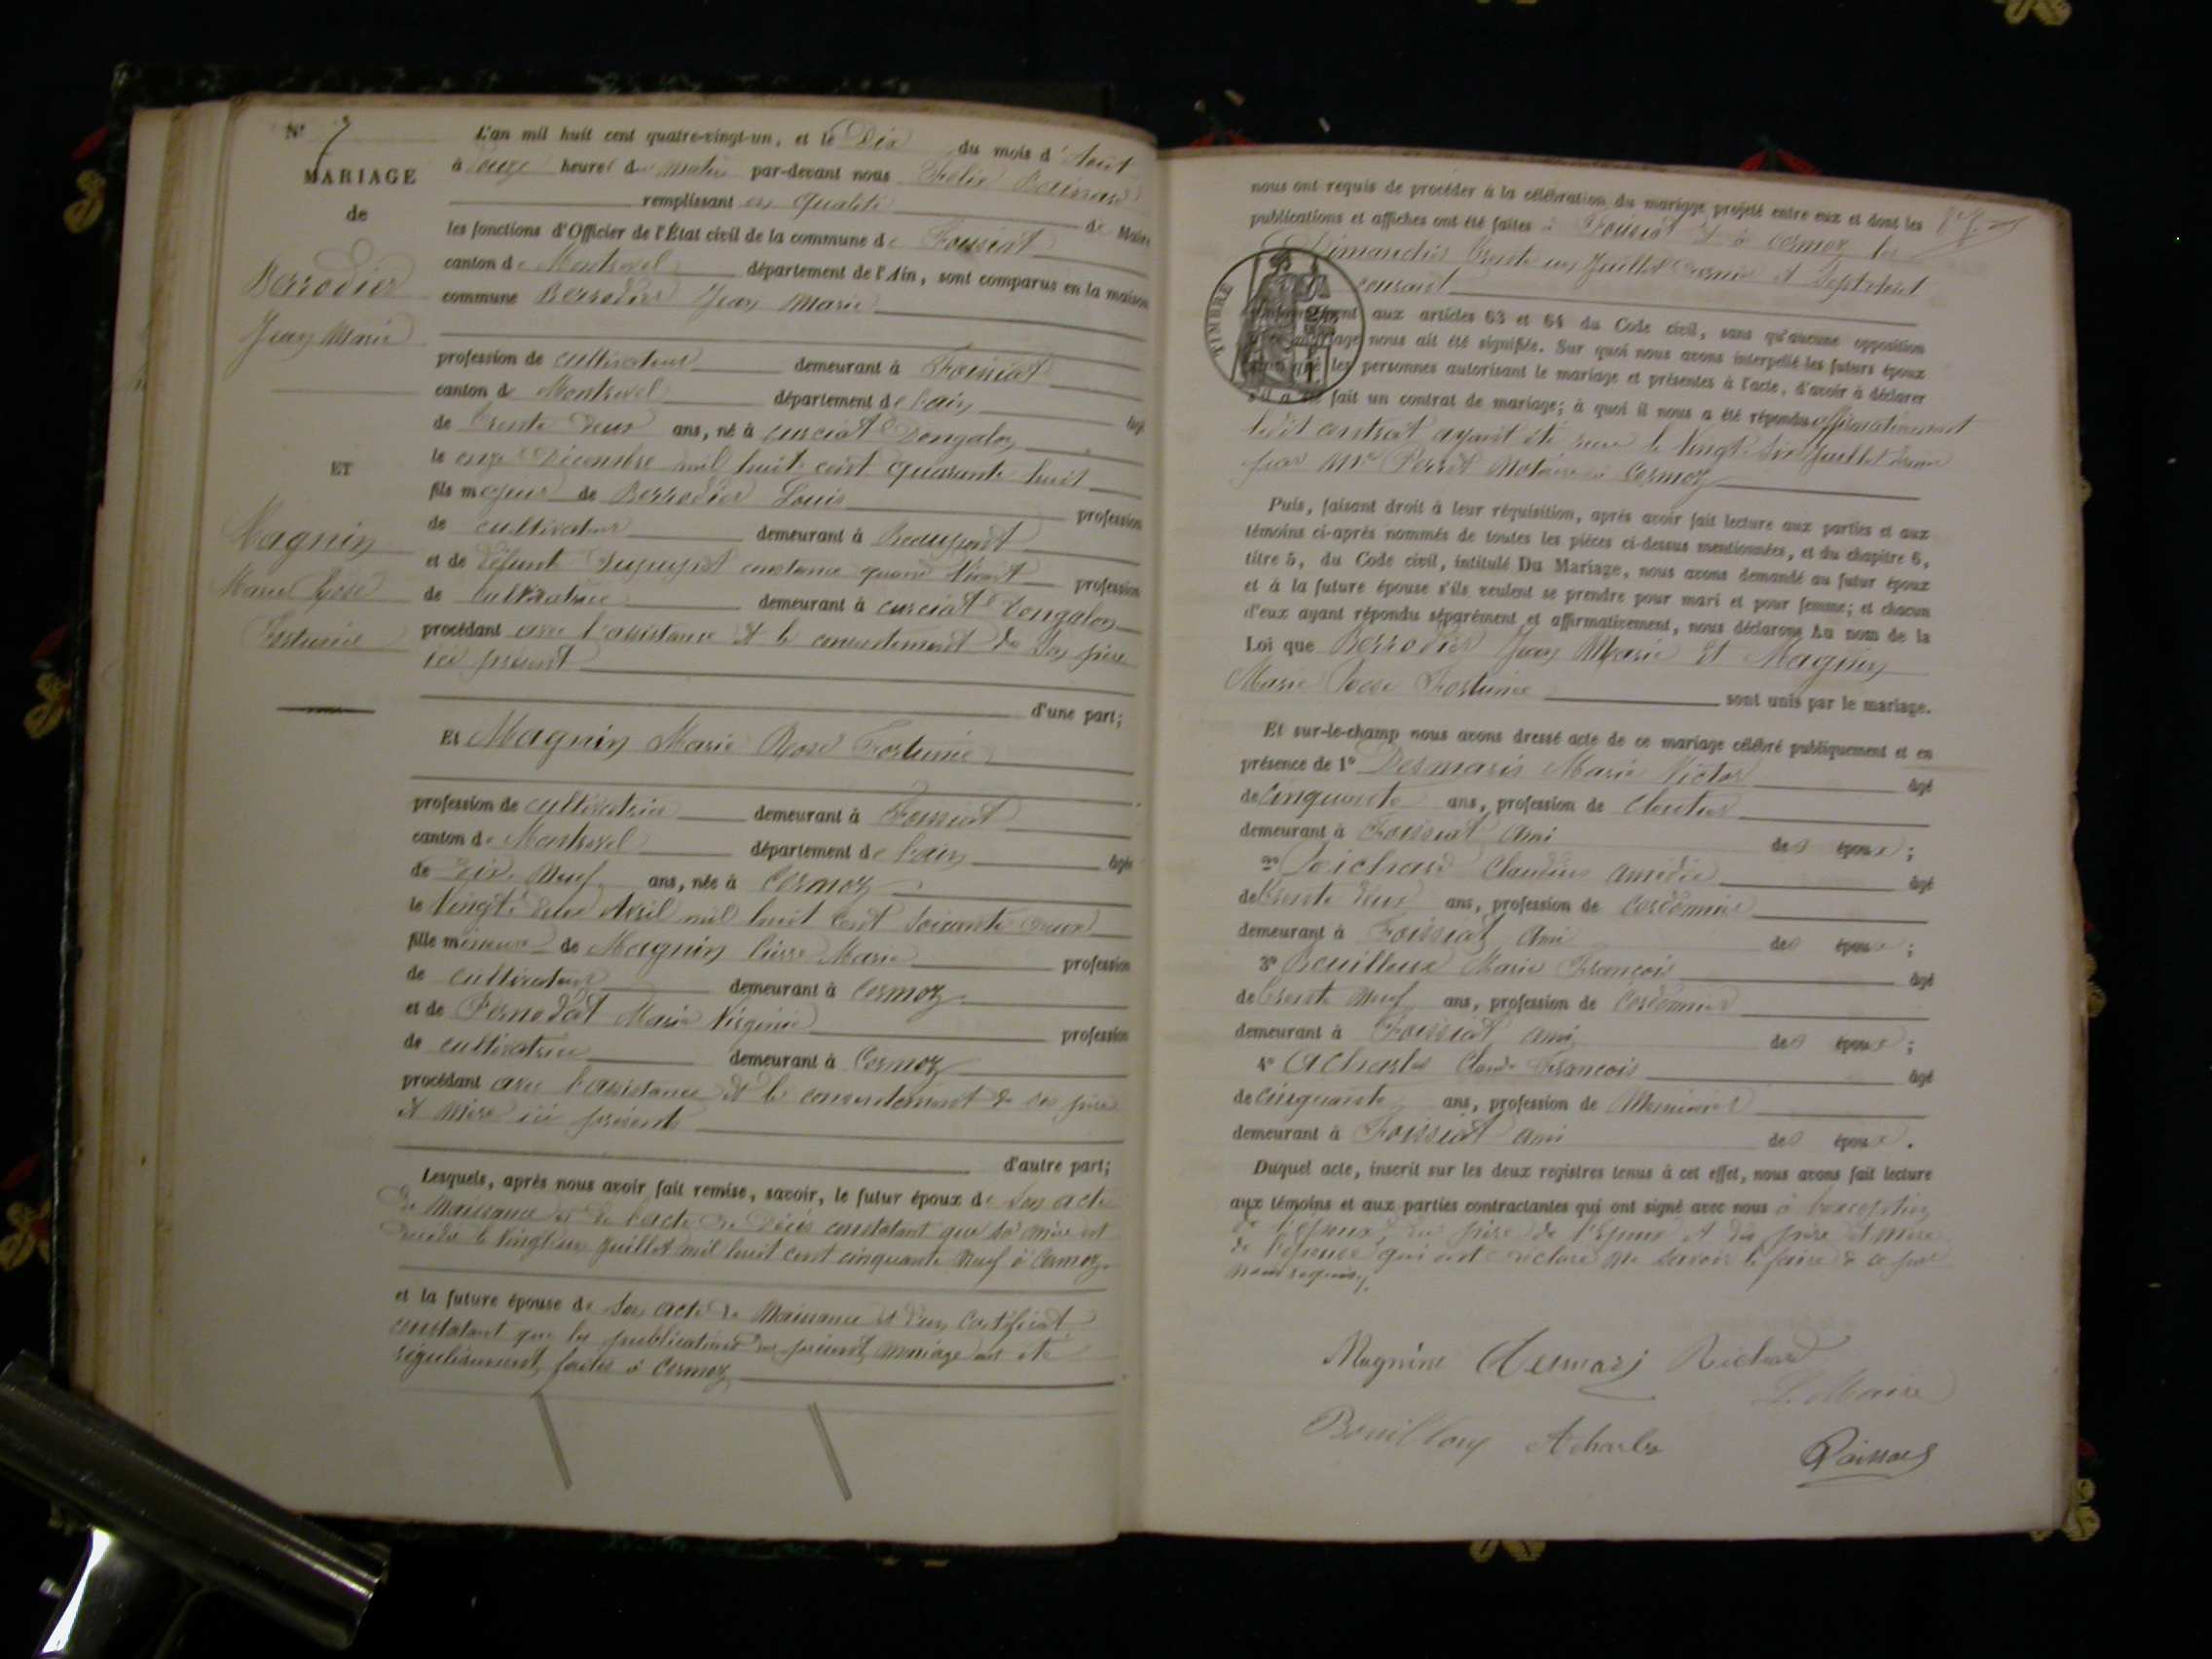 N° 7
MARIAGE
de
Berrodier
Jean Marie
ET
Magnin
Marie Rose
Fortunée
L'an mil huit cent quatre-vingt-un, et le Dix du mois d'Août
à onze heures du matin par-devant nous Félix
remplissant en qualité de Maire
les fonctions d'Officier de l'État civil de la commune de Foissiat
canton de Montrevel département de l'Ain, sont comparus en la maison
commune Berrodier Jean Marie
profession de cultivateur demeurant à Foissiat
canton de Montrevel département de l'ain âgé
de trente deux ans, né à curciat Dongalon
le onze Décembre mil huit cent quarante huit
fils majeur de Berrodier Louis profession
de cultivateur demeurant à Beaupont
et de défunt constance quand vivait profession
de cultivatrice demeurant à curciat Dongalon
procédant avec l'assistance et le consentement de son père
ici présent
d'une part;
Et Magnin Marie Rose Fortunée
profession de cultivatrice demeurant à Foissiat
canton de Montrevel département de l'ain âgée
de dix neuf ans, née à Cormoz
le vingt deux Avril mil huit cent soixante deux
fille mineure de Magnin Pierre Marie profession
de cultivateur demeurant à Cormoz
et de Pernodat Marie Virginie profession
de cultivatrice demeurant à Cormoz
procédant avec l'assistance et le consentement de ses père
et mère ici présents
d'autre part;
Lesquels, après nous avoir fait remise, savoir, le futur époux de son acte
de Naissance et de l'acte de Décès constatant que sa mère est
décédée le vingt un Juillet mil huit cent cinquante neuf à Cormoz
et la future épouse de son acte de Naissance et d'un certificat
constatant que les publications du présent mariage ont été
régulièrement faites à Cormoz
nous ont requis de procéder à la célébration du mariage projeté entre eux et dont les
publications et affiches ont été faites à Foissiat et à Cormoz les
Dimanches trente un Juillet dernier et sept Août
courant
TIMBRE
conformément aux articles 63 et 64 du Code civil, sans qu'aucune opposition
à ce mariage nous ait été signifiée. Sur quoi nous avons interpellé les futurs époux
ainsi que les personnes autorisant le mariage et présentes à l'acte, d'avoir à déclarer
s'il a été fait un contrat de mariage; à quoi il nous a été répondu affirmativement
ledit contrat ayant été reçu le vingt six Juillet dernier
par Me Perret Notaire à Cormoz
Puis, faisant droit à leur réquisition, après avoir fait lecture aux parties et aux
témoins ci-après nommés de toutes les pièces ci-dessus mentionnées, et du chapitre 6,
titre 5, du Code civil, intitulé Du Mariage, nous avons demandé au futur époux
et à la future épouse s'ils veulent se prendre pour mari et pour femme; et chacun
d'eux ayant répondu séparément et affirmativement, nous déclarons Au nom de la
Loi que Berrodier Jean Marie et Magnin
Marie Rose Fortunée sont unis par le mariage.
Et sur-le-champ nous avons dressé acte de ce mariage célébré publiquement et en
présence de 1° Desmaris Marie Victor âgé
de cinquante ans, profession de cloutier
demeurant à Foissiat ami des époux;
2° Richard Claudius Amédée âgé
de trente deux ans, profession de cordonnier
demeurant à Foissiat ami des époux;
3° Bouilloux Marie François âgé
de trente neuf ans, profession de cordonnier
demeurant à Foissiat ami des époux;
4° Acharles Claude François âgé
de cinquante ans, profession de Menuisier
demeurant à Foissiat ami des époux.
Duquel acte, inscrit sur les deux registres tenus à cet effet, nous avons fait lecture
aux témoins et aux parties contractantes qui ont signé avec nous à l'exception
de l'époux, du père de l'époux et des père et mère
de l'épouse qui ont déclaré ne savoir le faire de ce par
nous requis.
Magnin Desmaris Richard
Le Maire
Bouilloux Acharles